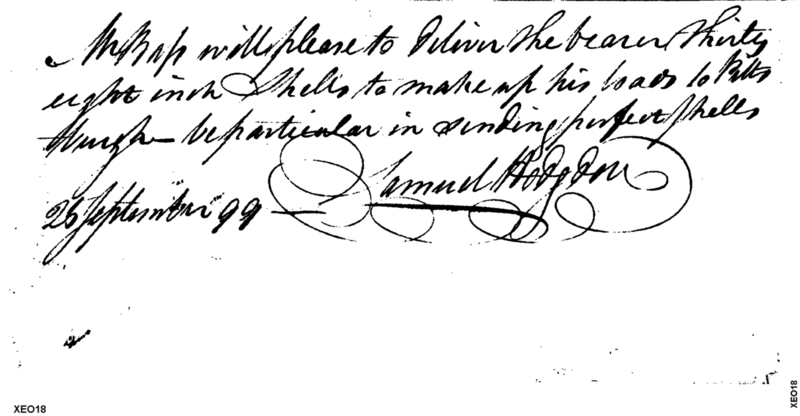 Mr Bass will please to deliver the bearer thirty
eight inch Shells to make up his loads to Pitts
burgh – be particular in sending perfect shells
Samuel Hodgdon
26 September 99 –
XEO18
XEO18